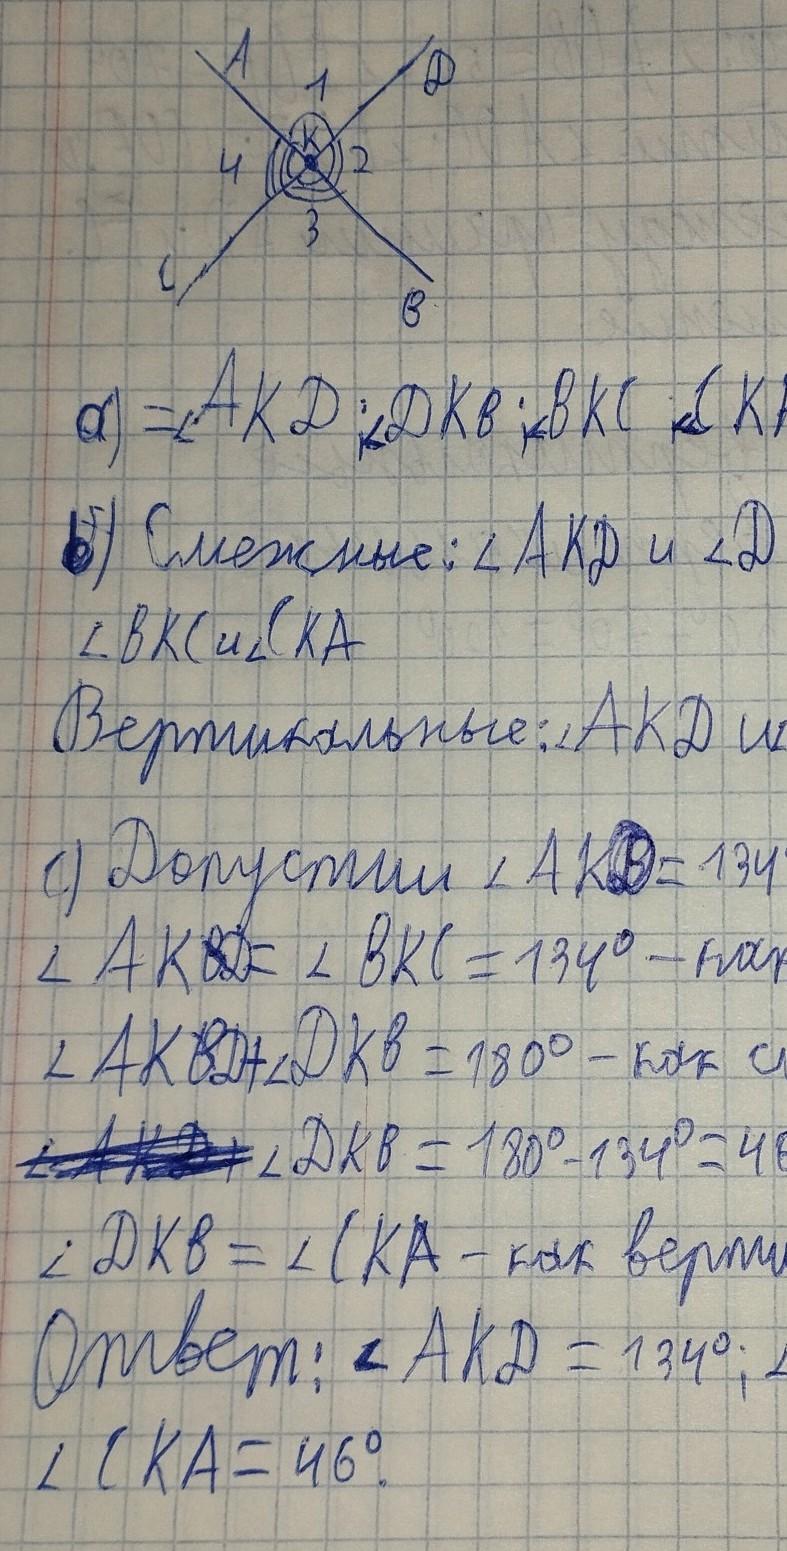 A
D
1
K
4
2
3
C
B
а) = ∠AKD; ∠DKB; ∠BKC ∠CKA
б) Смежные: ∠AKD и ∠D
∠BKC и ∠CKA
Вертикальные: ∠AKD и ∠
c) Допустим ∠AKD = 134°
∠AKD = ∠BKC = 134° – как
∠AKD + ∠DKB = 180° – как с
∠DKB = 180° - 134° = 46
∠DKB = ∠CKA – как верти
Ответ: ∠AKD = 134°; ∠
∠CKA = 46°.